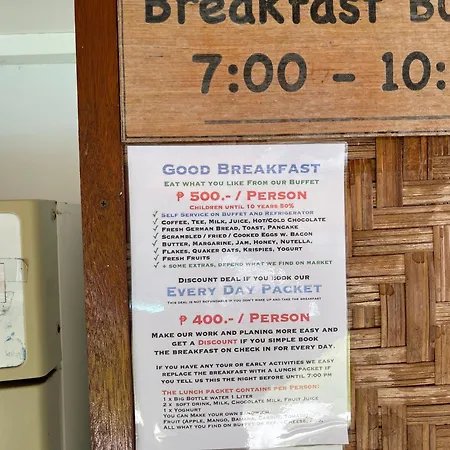 Breakfast Bu
7:00 - 10:
GOOD BREAKFAST
EAT WHAT YOU LIKE FROM OUR BUFFET
₱ 500.- / PERSON
CHILDREN UNTIL 10 YEARS 50%
✓ SELF SERVICE ON BUFFET AND REFRIGERATOR
✓ COFFEE, TEE, MILK, JUICE, HOT/COLD CHOCOLATE
✓ FRESH GERMAN BREAD, TOAST, PANCAKE
✓ SCRAMBLED / FRIED / COOKED EGGS W. BACON
✓ BUTTER, MARGARINE, JAM, HONEY, NUTELLA,
✓ FLAKES, QUAKER OATS, KRISPIES, YOGURT
✓ FRESH FRUITS
+ SOME EXTRAS, DEPEND WHAT WE FIND ON MARKET
DISCOUNT DEAL IF YOU BOOK OUR
EVERY DAY PACKET
THIS DEAL IS NOT REFUNDABLE IF YOU DON'T WAKE UP AND TAKE THE BREAKFAST
₱ 400.- / PERSON
MAKE OUR WORK AND PLANING MORE EASY AND
GET A DISCOUNT IF YOU SIMPLE BOOK
THE BREAKFAST ON CHECK IN FOR EVERY DAY.
IF YOU HAVE ANY TOUR OR EARLY ACTIVITIES WE EASY
REPLACE THE BREAKFAST WITH A LUNCH PACKET IF
YOU TELL US THIS THE NIGHT BEFORE UNTIL 7:00 PM
THE LUNCH PACKET CONTAINS PER PERSON:
1 X BIG BOTTLE WATER 1 LITER
2 X SOFT DRINK, MILK, CHOCOLATE MILK, FRUIT JUICE
1 X YOGHURT
YOU CAN MAKE YOUR OWN SANDWICH
FRUIT (APPLE, MANGO, BANANA,
ALL WHAT YOU FIND ON BUFFET